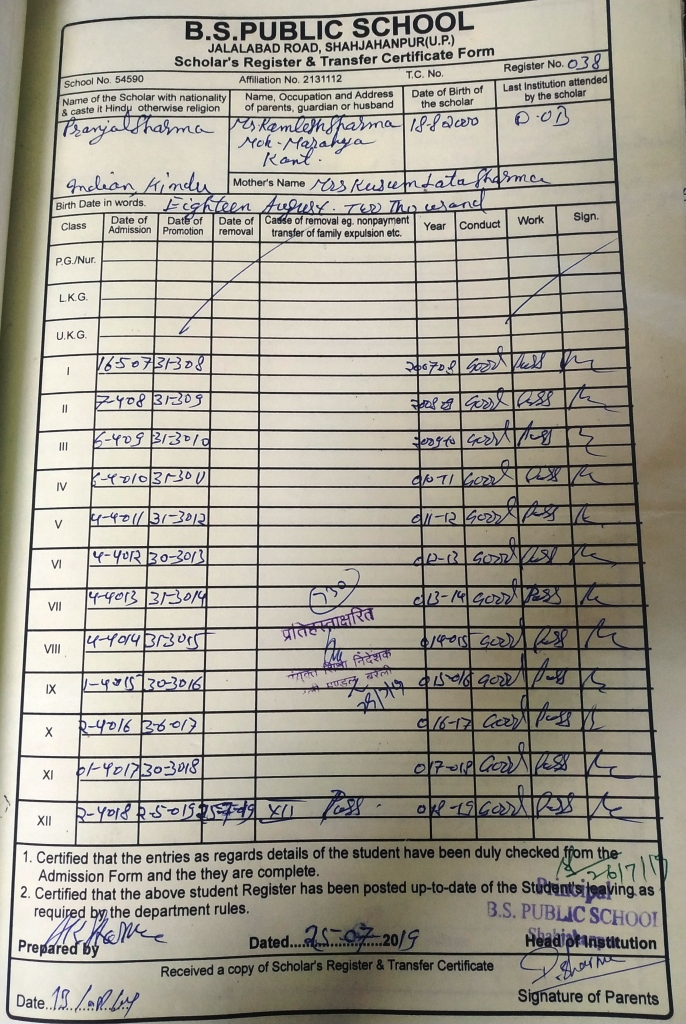 B.S.PUBLIC SCHOOL
JALALABAD ROAD, SHAHJAHANPUR(U.P.)
Scholar's Register & Transfer Certificate Form
School No. 54590 Affiliation No. 2131112 T.C. No. Register No. 038
Name of the Scholar with nationality & caste it Hindu otherwise religion
Name, Occupation and Address of parents, guardian or husband
Date of Birth of the scholar
Last Institution attended by the scholar
Pranjal Sharma
Indian, Hindu
Mr Kamlesh Sharma
Kant.
18-8-2000
Mother's Name Mrs Kusum Lata Sharma
Birth Date in words. Eighteen August. Two Thousand
Class Date of Admission Date of Promotion Date of removal Cause of removal eg. nonpayment transfer of family expulsion etc. Year Conduct Work Sign.
P.G./Nur.
L.K.G.
U.K.G.
I 16-507 31-308 200708 Good Pass
II 7-408 31-309 2008-09 Good Pass
III 6-409 31-3010 2009-10 Good Pass
IV 31-3011 010-11 Good Pass
V 4-4011 31-3012 011-12 Good Pass
VI 4-4012 30-3013 012-13 Good Pass
VII 4-4013 31-3014 013-14 Good Pass
VIII 4-4014 31-3015 014-015 Good Pass
IX 1-4015 30-3016 015-016 Good Pass
X 2-4016 3-6-017 016-17 Good Pass
XI 01-4017 30-3018 017-018 Good Pass
XII 2-4018 2-5-019 25-7-19 XII Pass 018-19 Good Pass
730
प्रतिहस्ताक्षरित
संयुक्त शिक्षा निदेशक
मण्डल बरेली
1. Certified that the entries as regards details of the student have been duly checked from the Admission Form and the they are complete.
26/7/19
2. Certified that the above student Register has been posted up-to-date of the Student's leaving as required by the department rules.
Principal
B.S. PUBLIC SCHOOL
Shahjahanpur
Prepared by Dated 25-07 2019 Head of Institution
Received a copy of Scholar's Register & Transfer Certificate
P. Sharma
Date
Signature of Parents